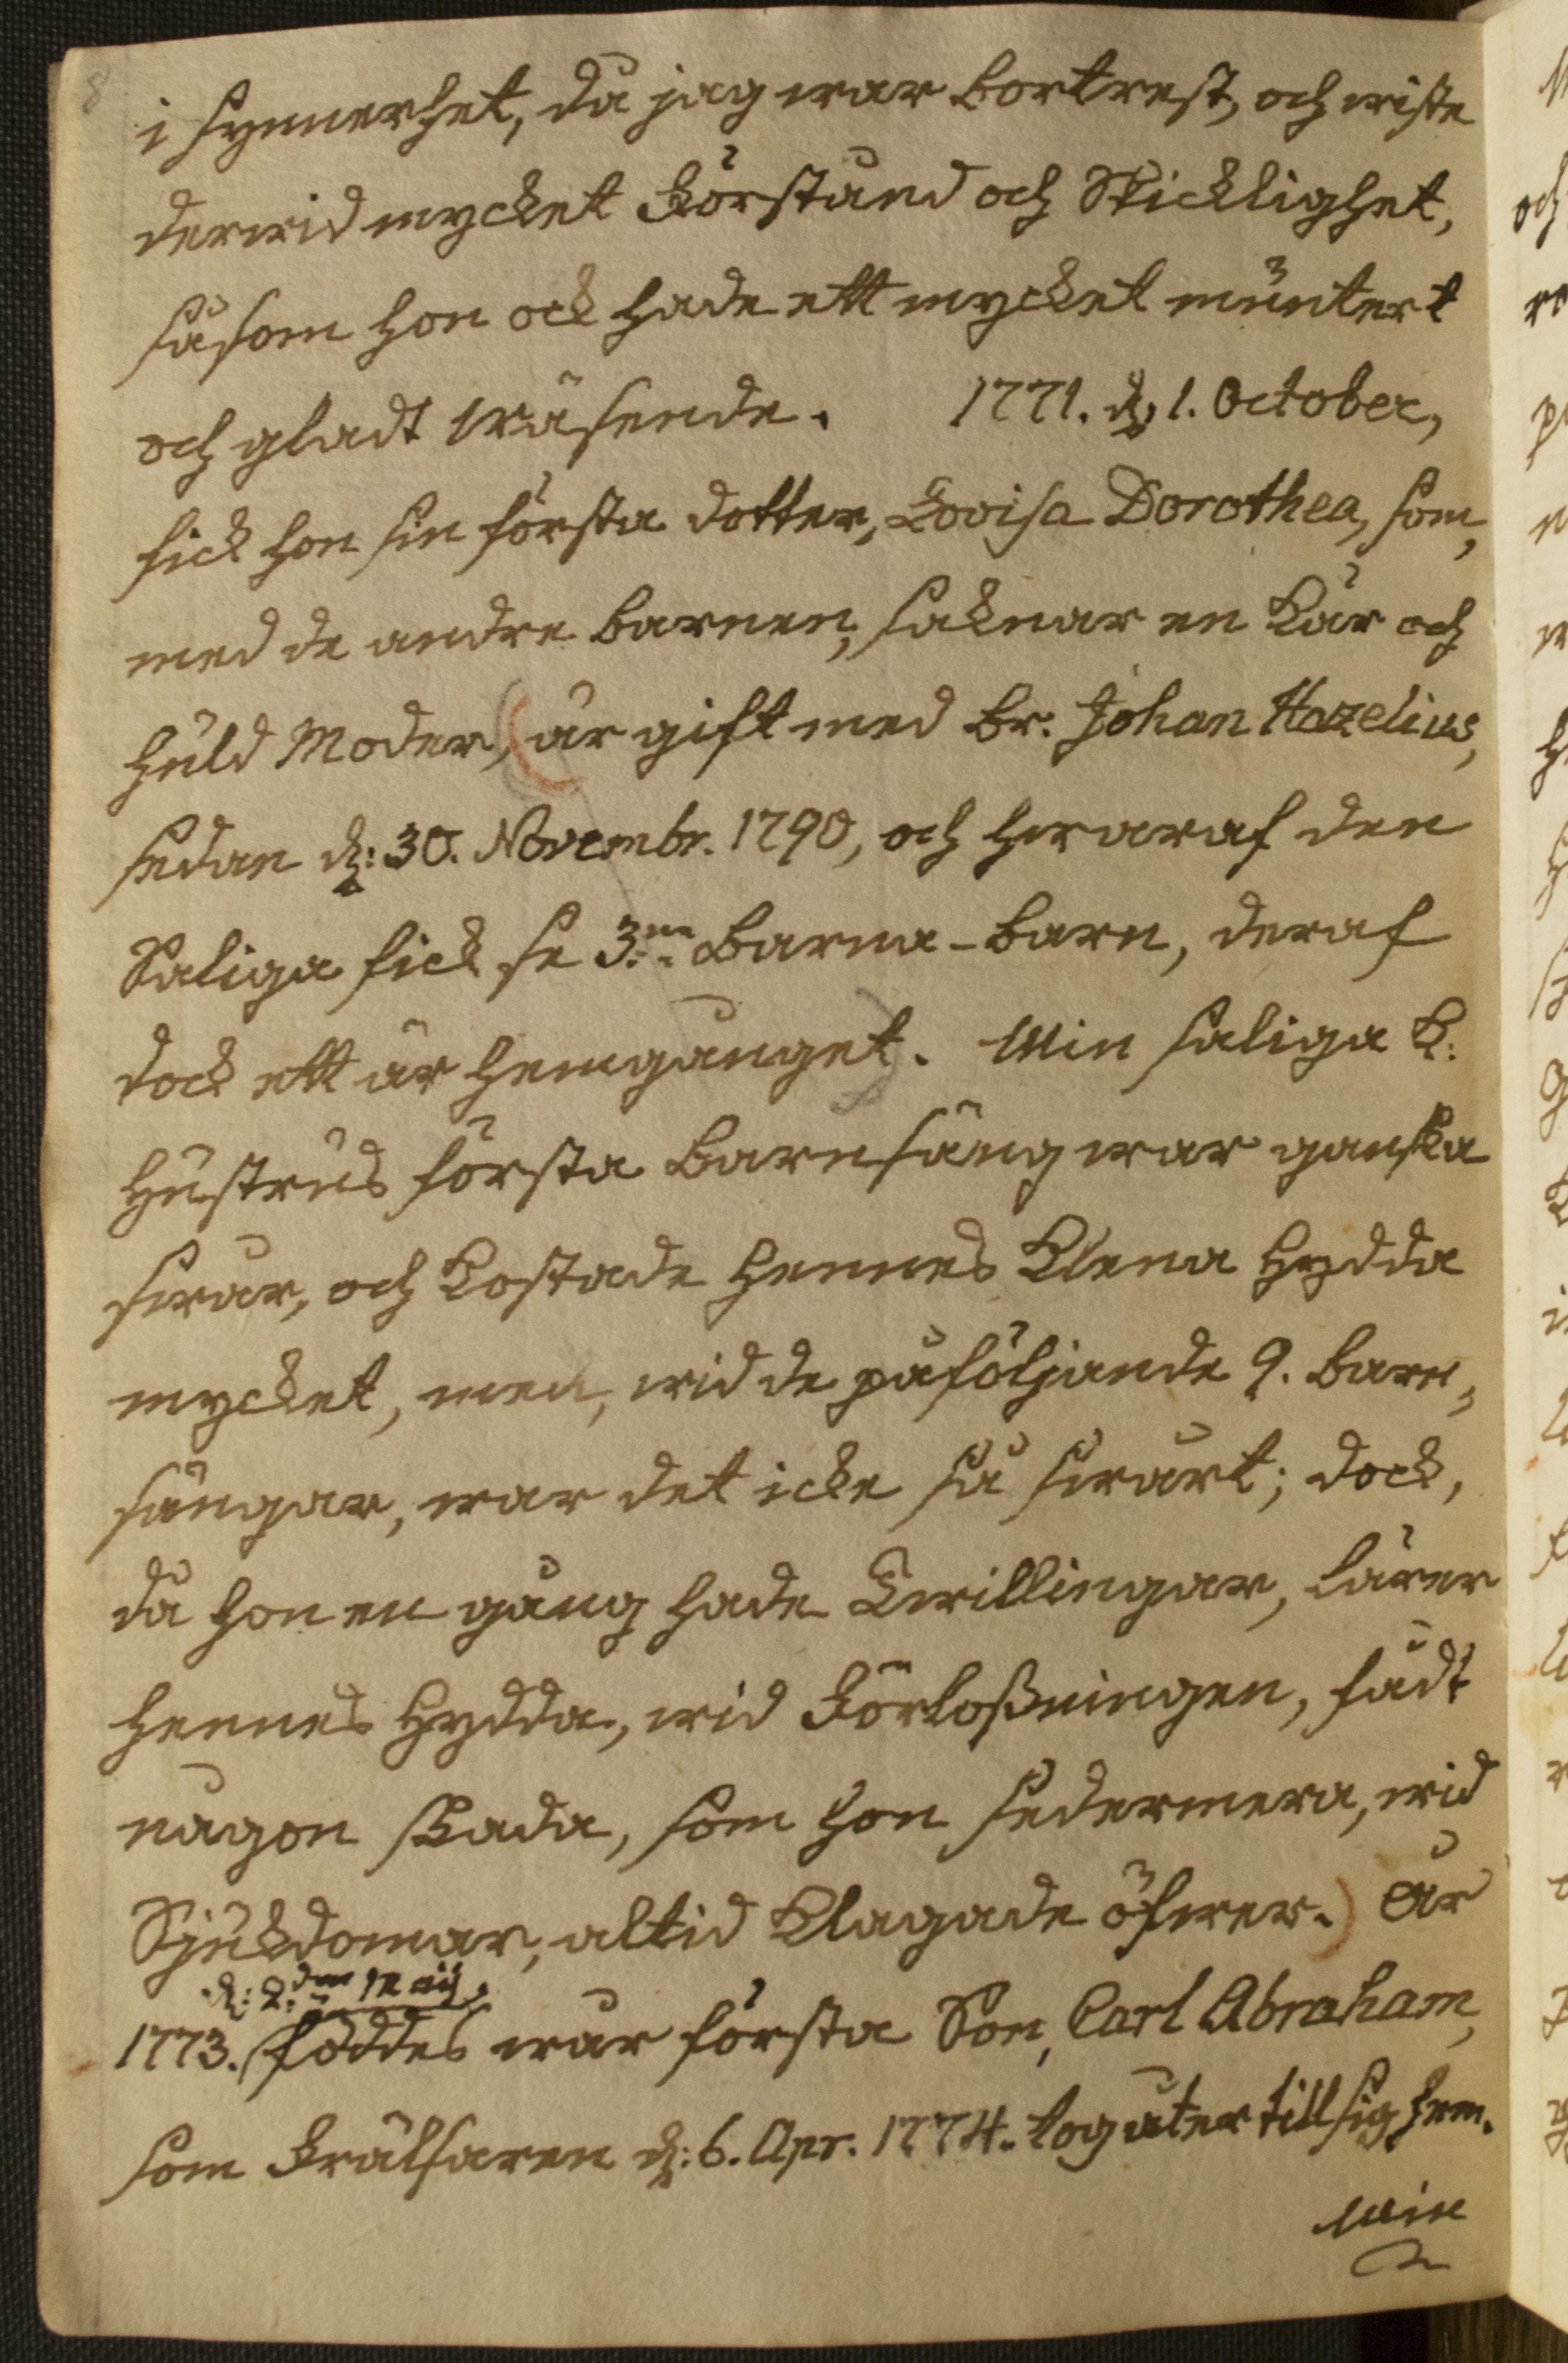 8
i synnerhet, då jag war bortrest, och wiste
derwid mycket Förstånd och Skicklighet,
såsom hon ock hade ett mycket muntert
och gladt wäsende. 1771. d. 1. October,
fick hon sin första dotter, Lovisa Dorothea, som,
med de andre barnen, saknar en kär och
huld Moder, (är gift med Br. Johan Hazelius,
sedan d: 30. Novembr. 1790, och hwaraf den
Saliga fick se 3:ne Barna-Barn, deraf
dock ett är hemgånget). Min saliga K:
Hustrus första Barnsäng war ganska
swår, och kostade hennes klena Hydda
mycket, men, wid de påföljande 9. barn,
sängar, war det icke så swårt; dock,
då hon en gång hade Twillingar, lärer
hennes Hydda, wid Förloßningen, fådt
någon skada, som hon sedermera, wid
Sjukdomar, altid klagade öfwer.) År
d: 2:den Maij,
1773. föddes wår första Son, Carl Abraham,
som Frälsaren d: 6. Apr. 1774. tog åter till sig hem.
Min